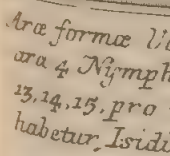 Aræ formæ
ara 4 Nymph
13, 14, 15, pro
habetur, Isid